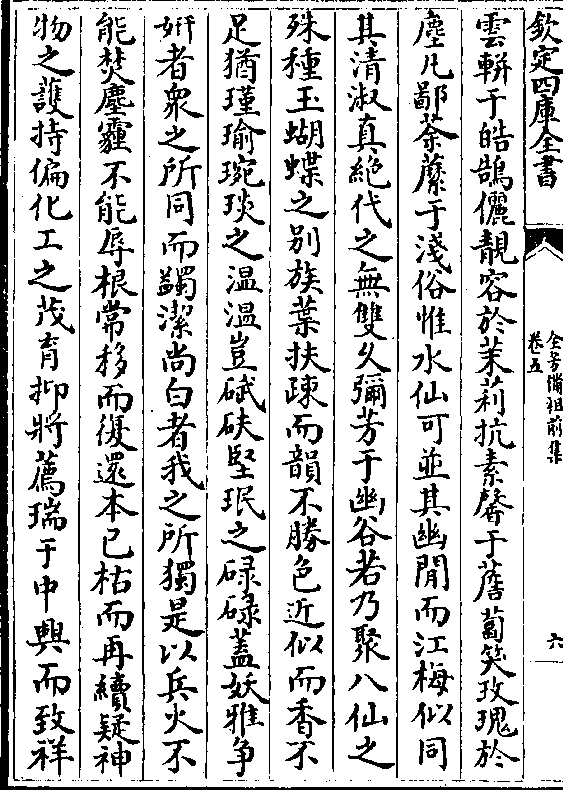 欽定四庫全書
全芳備祖前集
卷五
六
雲軿于皓鵠儷靚容於茉莉抗素馨于薝蔔笑玫瑰於
塵凡鄙荼蘼于淺俗惟水仙可並其幽閒而江梅似同
其清淑真絶代之無雙久彌芳于幽谷若乃聚八仙之
殊種玉蝴蝶之别族葉扶疎而韻不勝色近似而香不
足猶瑾瑜琬琰之温温豈碔砆堅珉之碌碌蓋妖雅争
妍者衆之所同而蠲潔尚白者我之所獨是以兵火不
能焚塵霾不能辱根常移而復還本已枯而再續疑神
物之護持偏化工之茂育抑將薦瑞于中興而致祥